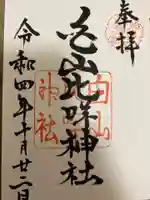 奉拝
白山比咩神社
白山
神社
令和四年十月廿二日